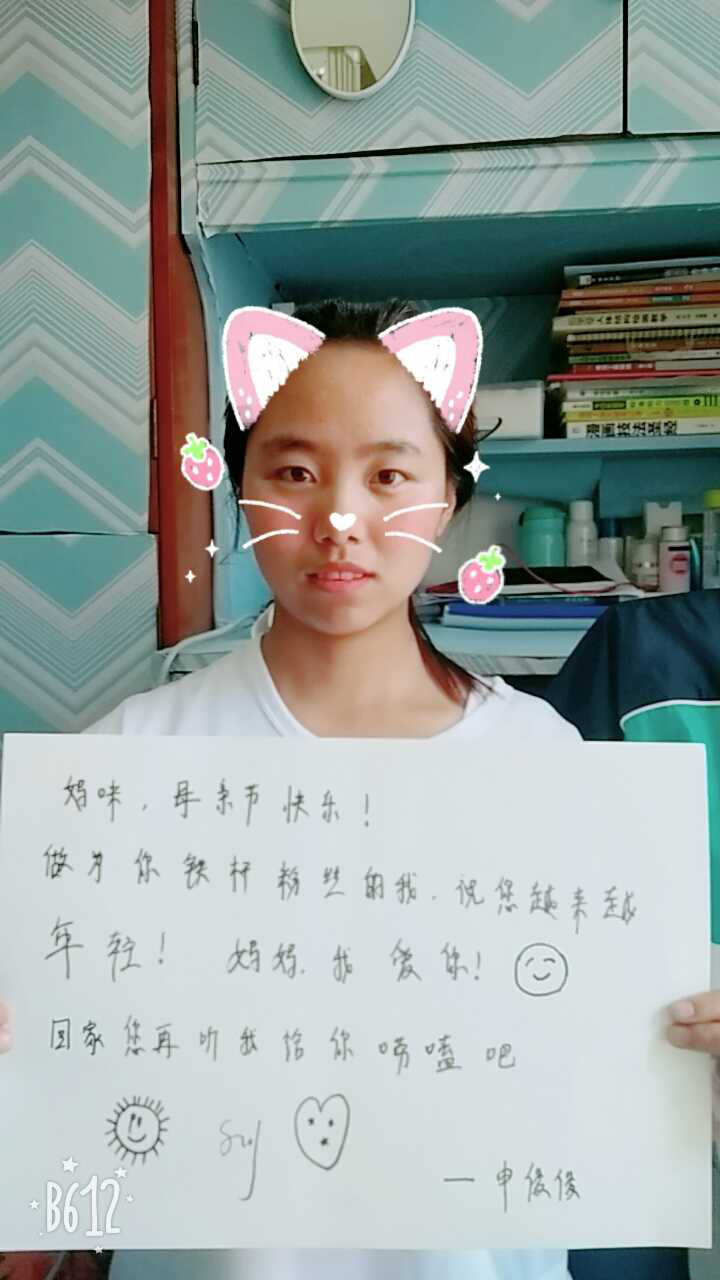 漫画技法圣经
妈咪，母亲节快乐！
做为你铁杆粉丝的我，说您越来越
年轻！ 妈妈，我爱你！
回家您再听我给你唠嗑吧
—申俊俊
B612